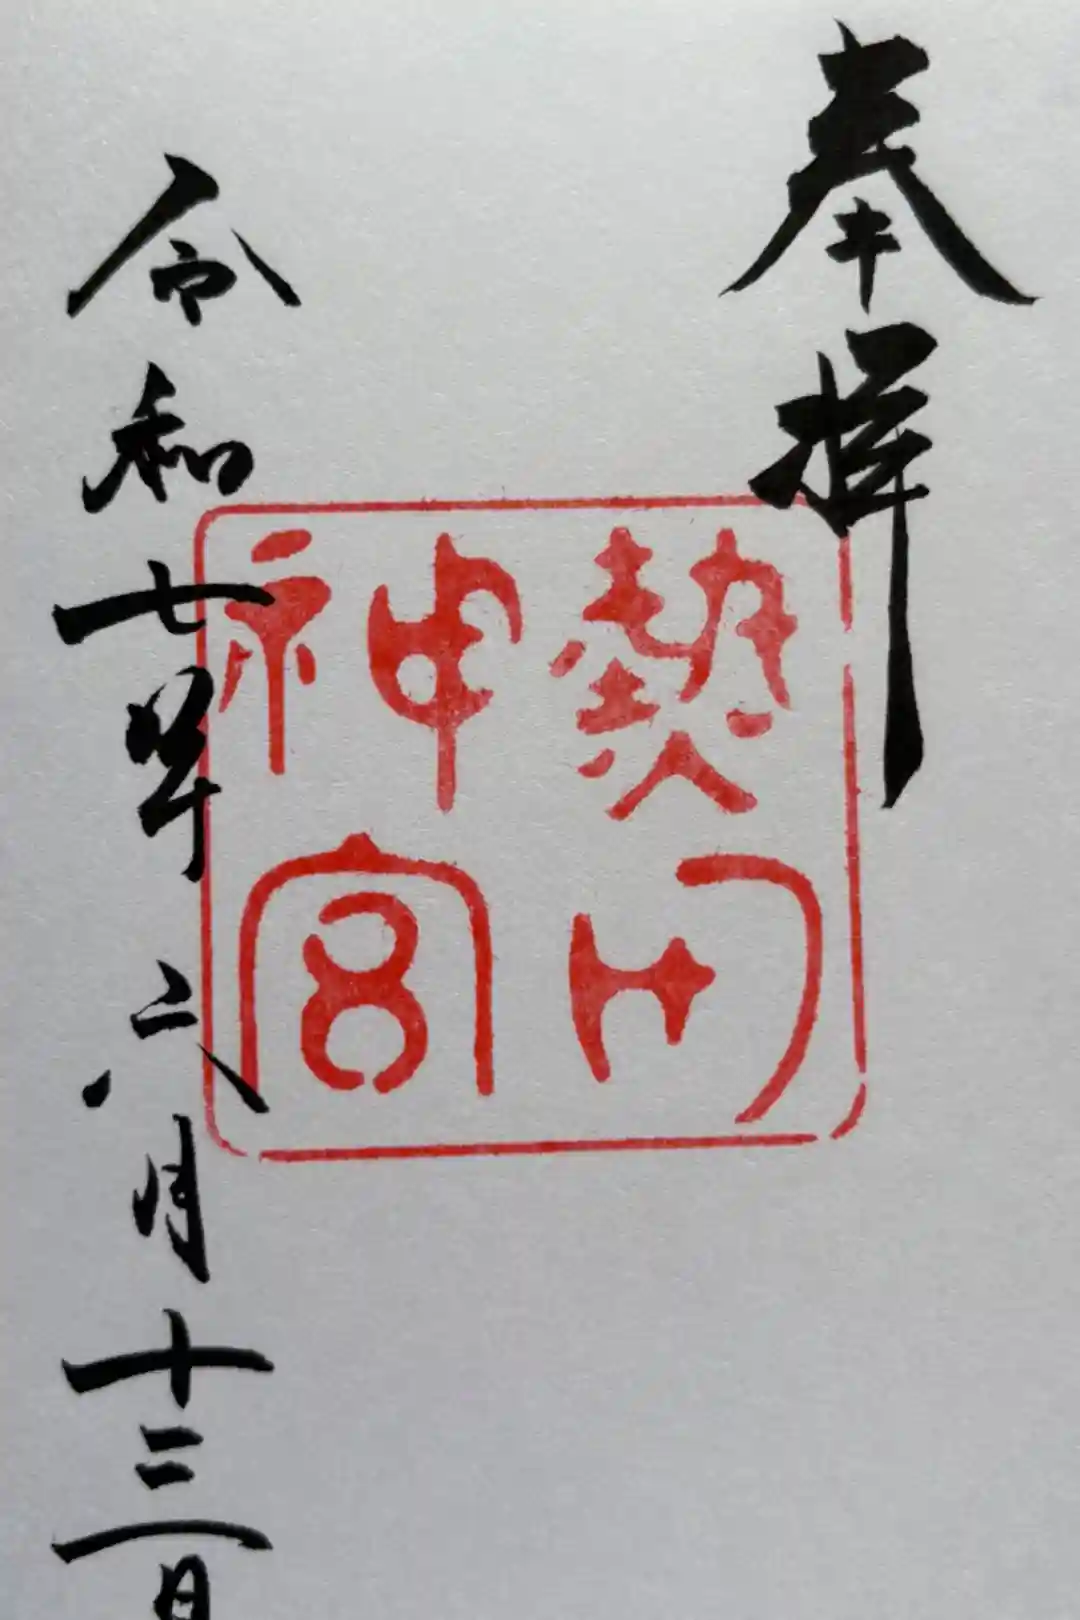 奉拝
熱田
神宮
令和七年六月十三日